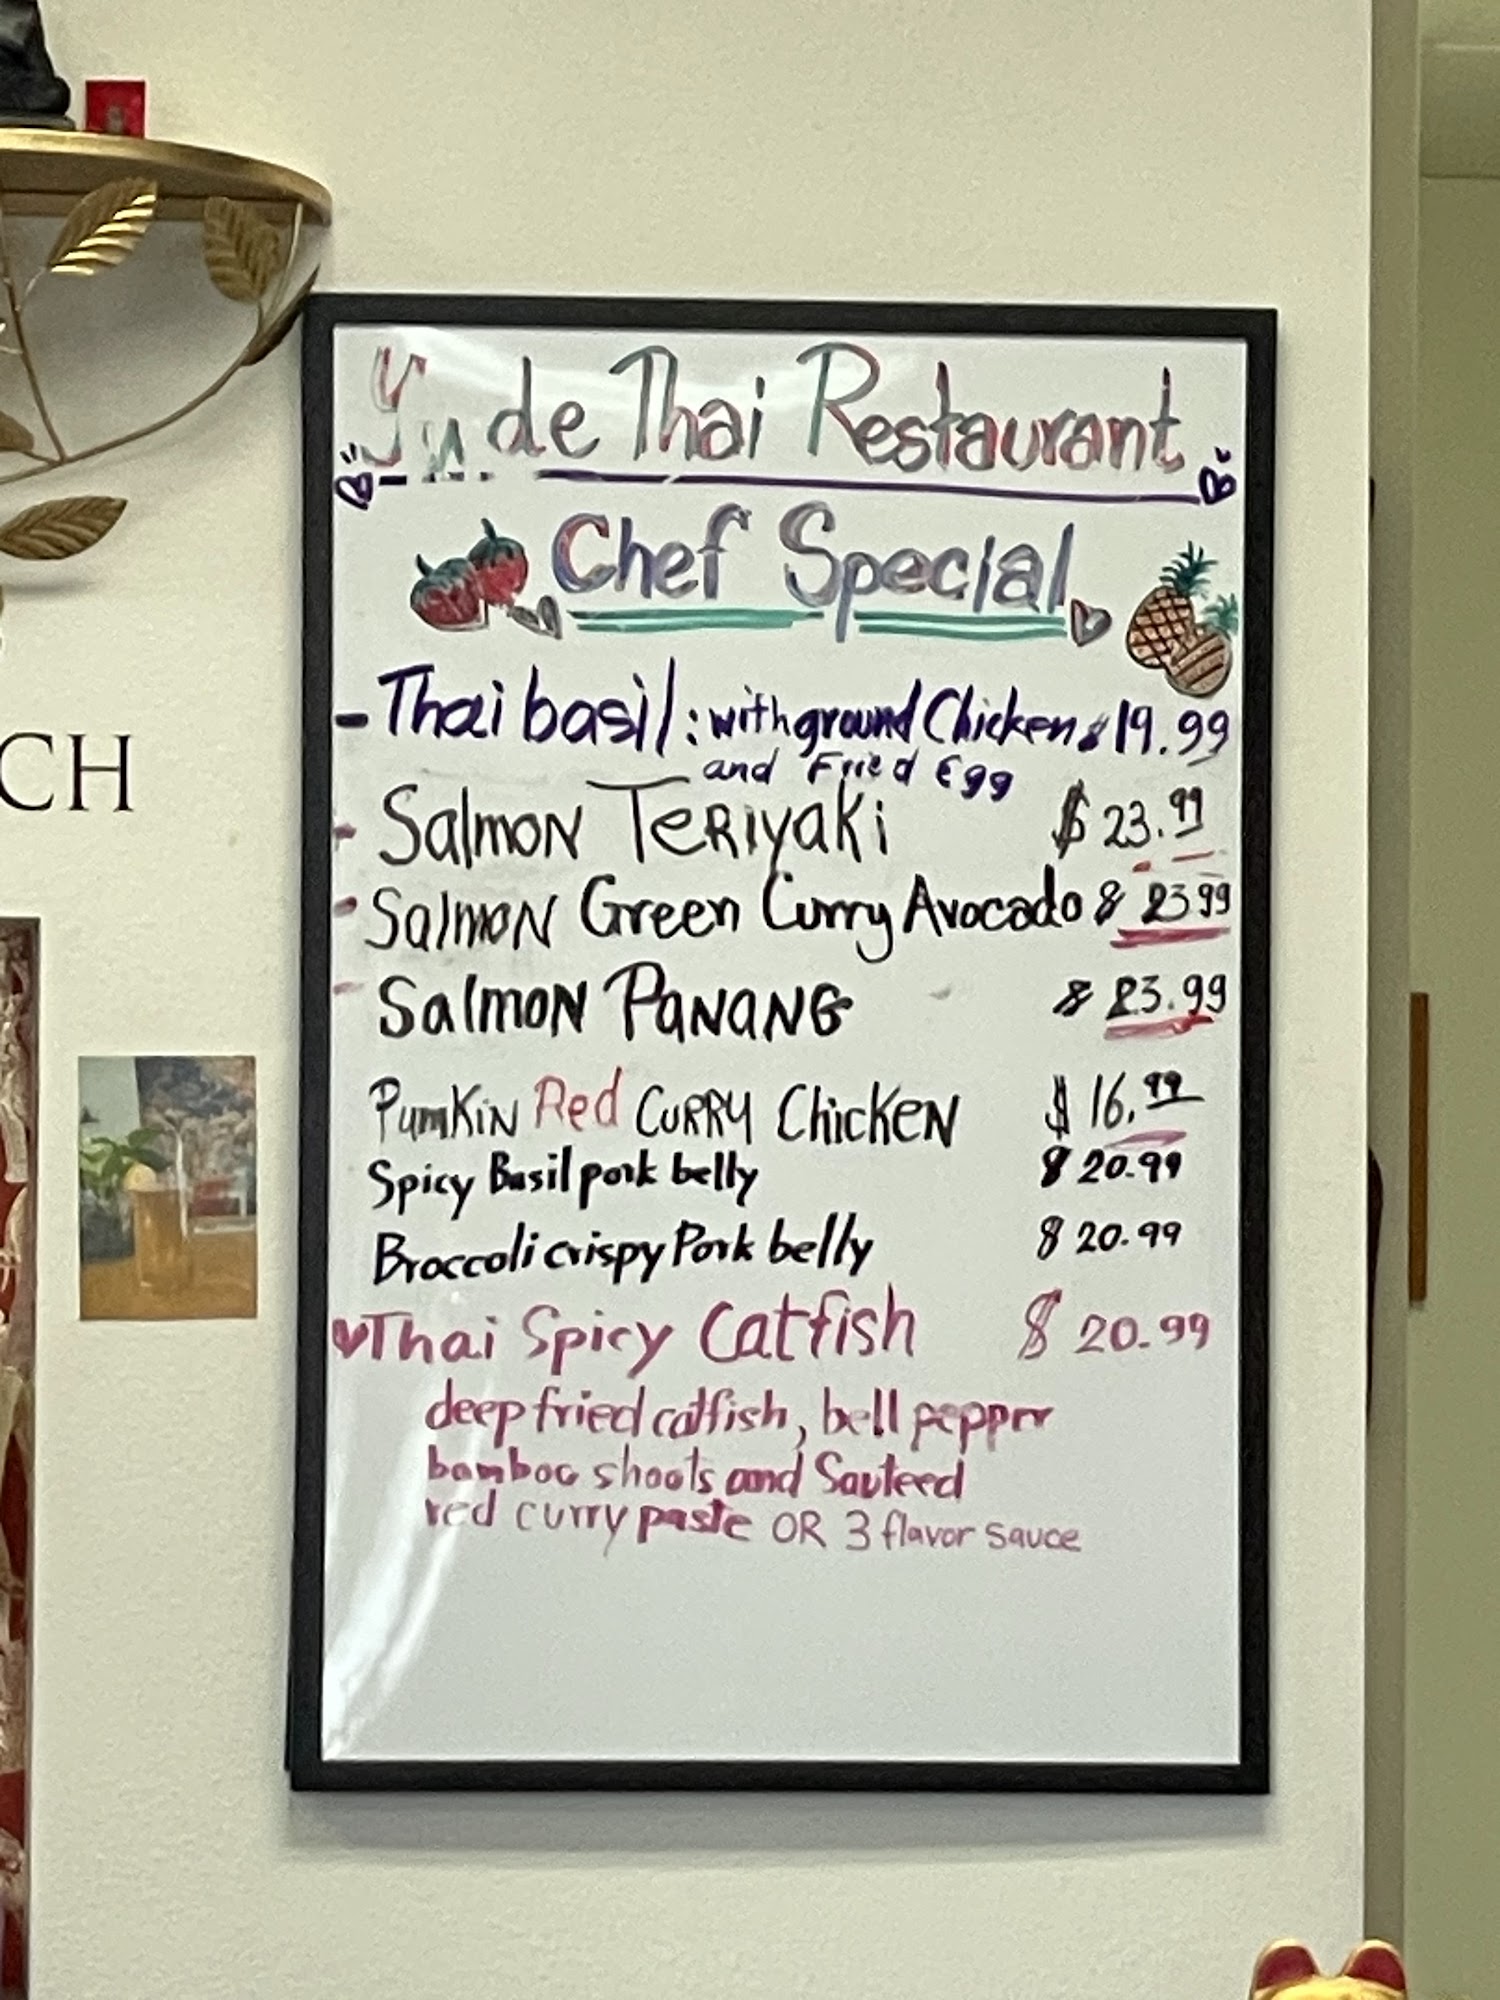 Yude Thai Restaurant
Chef Special
- Thai basil: with ground Chicken $19.99
and Fried Egg
- Salmon Teriyaki $23.99
- Salmon Green Curry Avocado $23.99
- Salmon Panang $23.99
Pumkin Red Curry Chicken $16.99
Spicy Basil pork belly $20.99
Broccoli crispy Pork belly $20.99
Thai Spicy Catfish $20.99
deep fried catfish, bell pepper
bamboo shoots and Sauteed
red curry paste OR 3 flavor sauce
CH